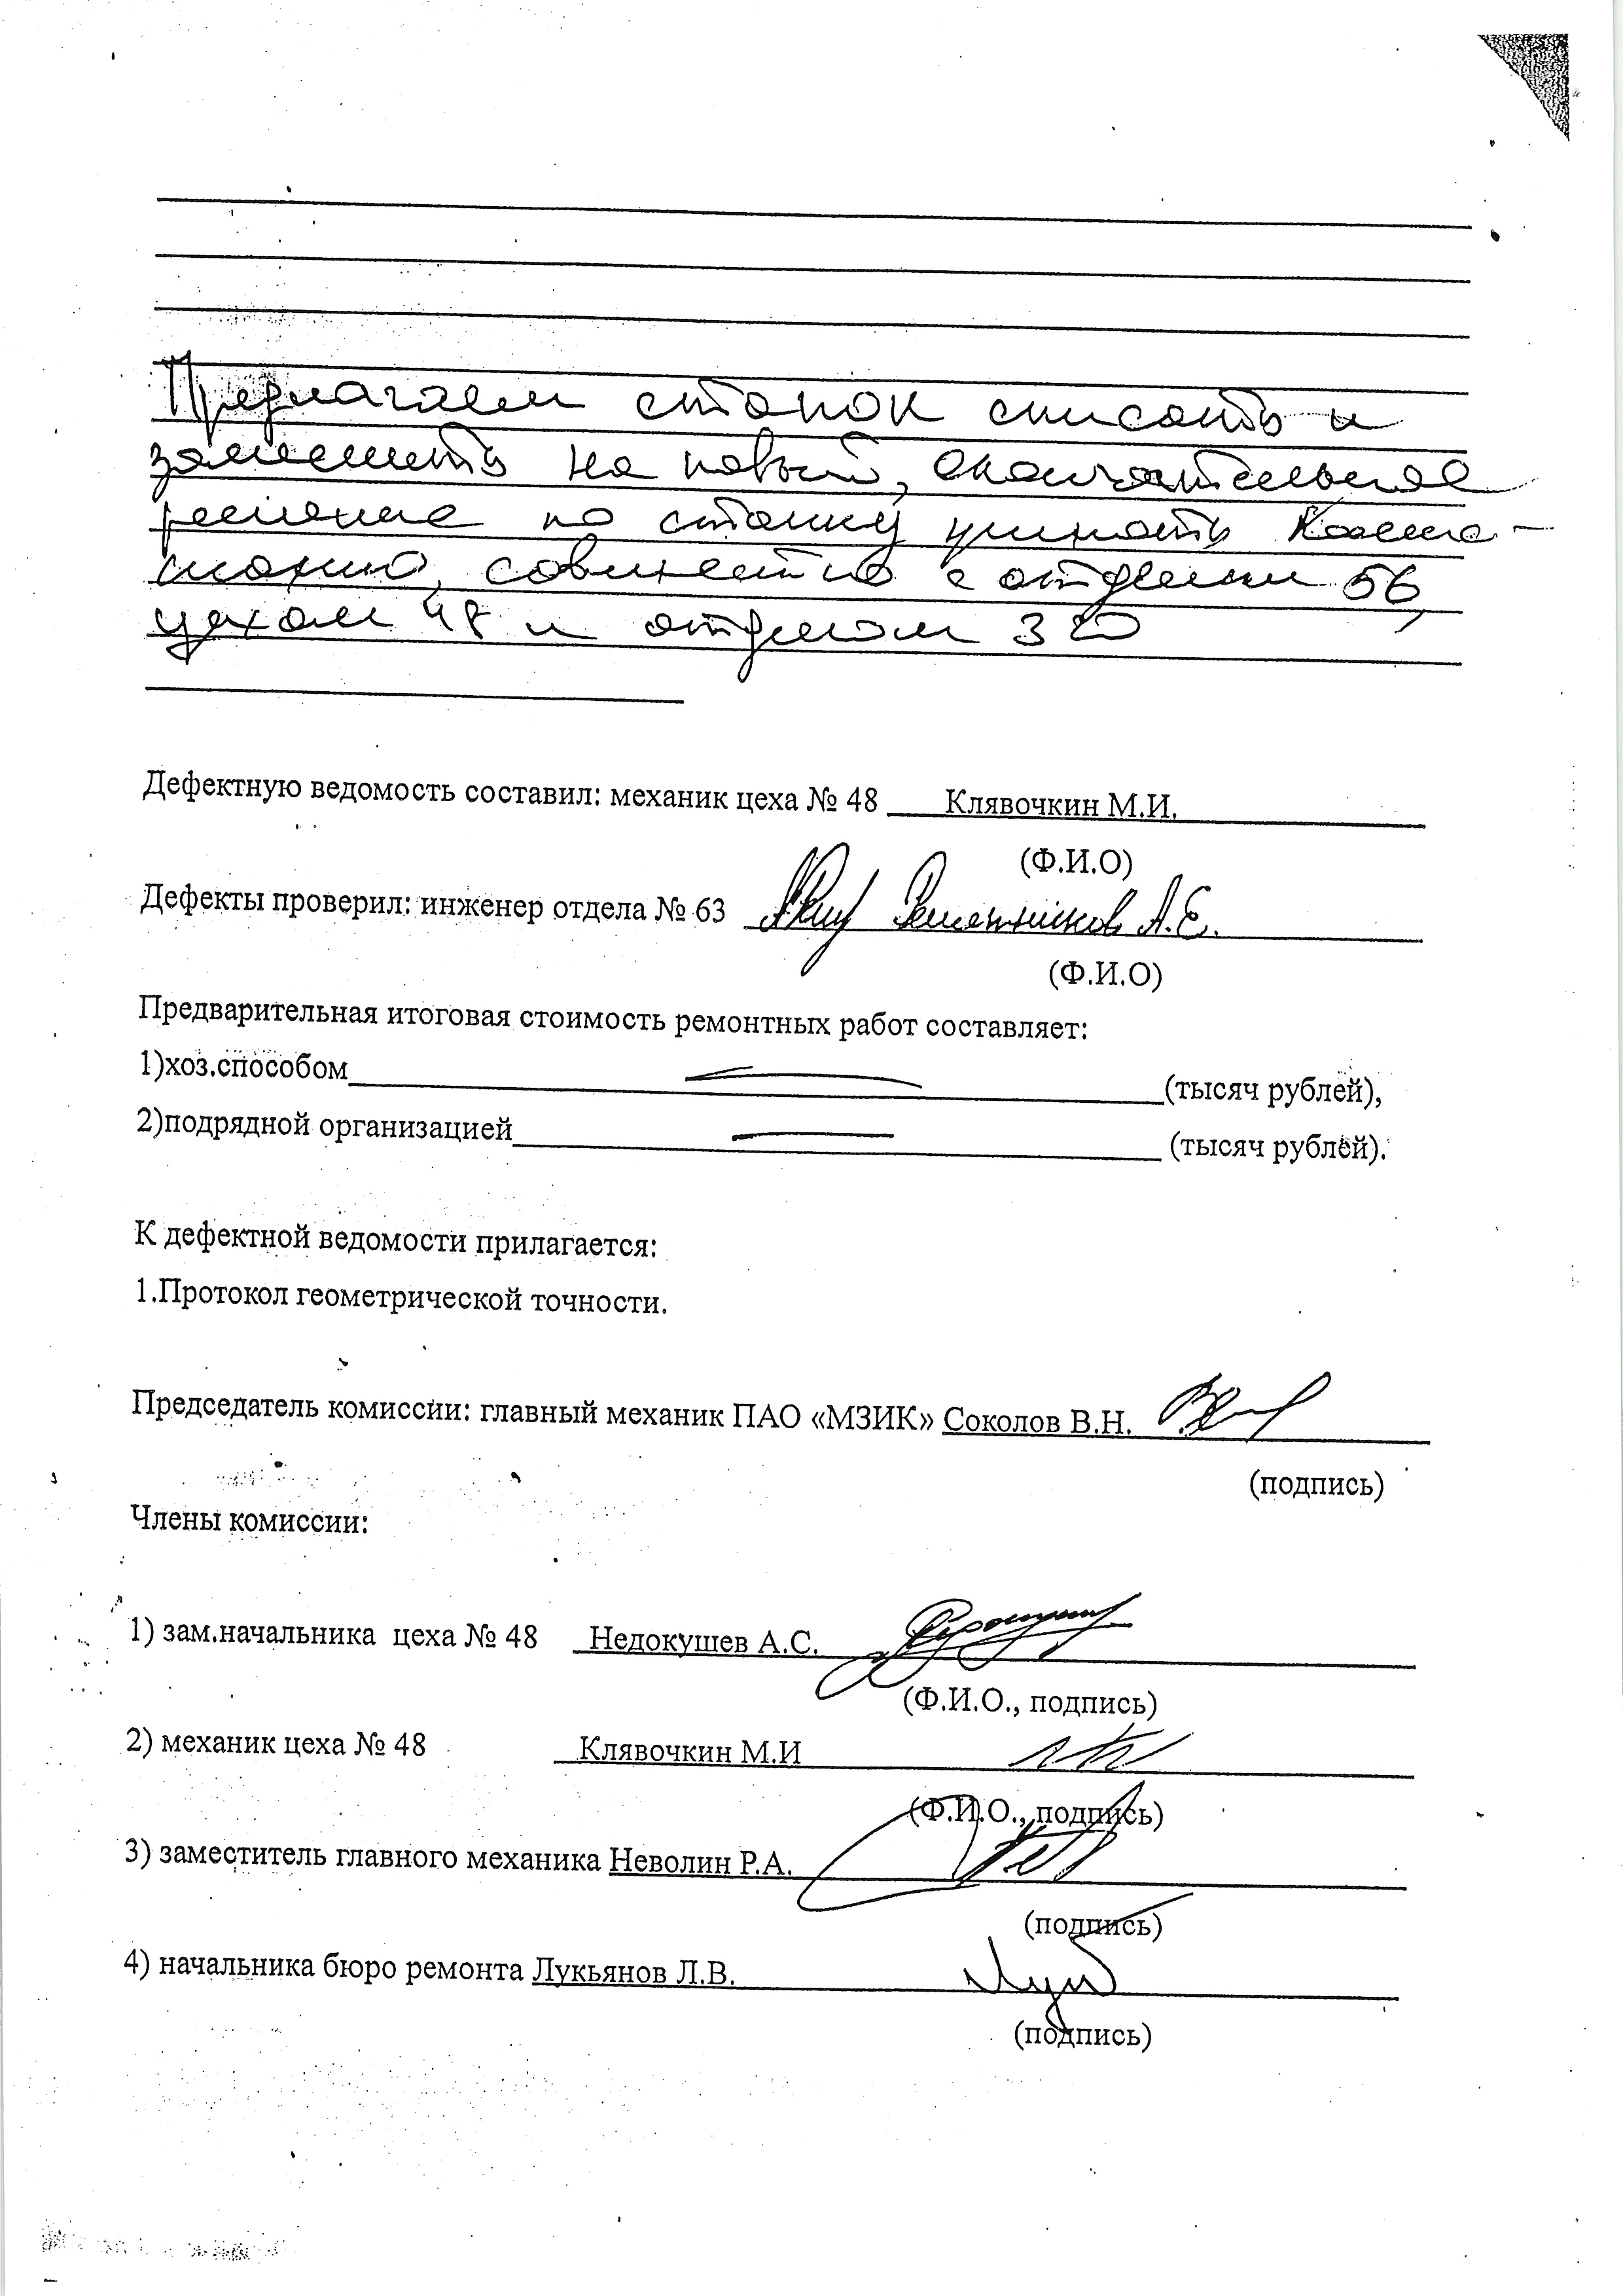 Предлагаем станок списать и
заменить на новый, окончательное
решение по станку принять
совместно с отделом 56,
цехом 48 и отделом
Дефектную ведомость составил: механик цеха № 48 Клявочкин М.И.
(Ф.И.О)
Дефекты проверил: инженер отдела № 63 А.Е.
(Ф.И.О)
Предварительная итоговая стоимость ремонтных работ составляет:
1)хоз.способом (тысяч рублей),
2)подрядной организацией (тысяч рублей).
К дефектной ведомости прилагается:
1.Протокол геометрической точности.
Председатель комиссии: главный механик ПАО «МЗИК» Соколов В.Н.
(подпись)
Члены комиссии:
1) зам.начальника цеха № 48 Недокушев А.С.
(Ф.И.О., подпись)
2) механик цеха № 48 Клявочкин М.И
(Ф.И.О., подпись)
3) заместитель главного механика Неволин Р.А.
(подпись)
4) начальника бюро ремонта Лукьянов Л.В.
(подпись)